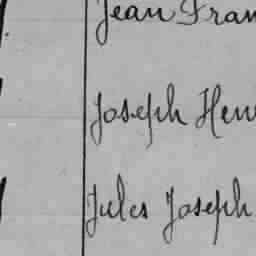 Jean Fran
Joseph Hen
Jules Joseph